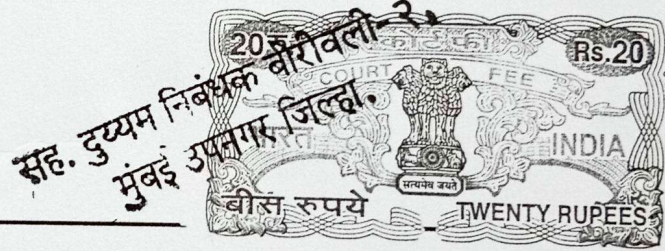 सह. दुय्यम निबंधक बोरीवली-२,
मुंबई उपनगर जिल्हा.
20 रु कोर्ट फी Rs.20
COURT FEE
भारत INDIA
सत्यमेव जयते
बीस रुपये TWENTY RUPEES